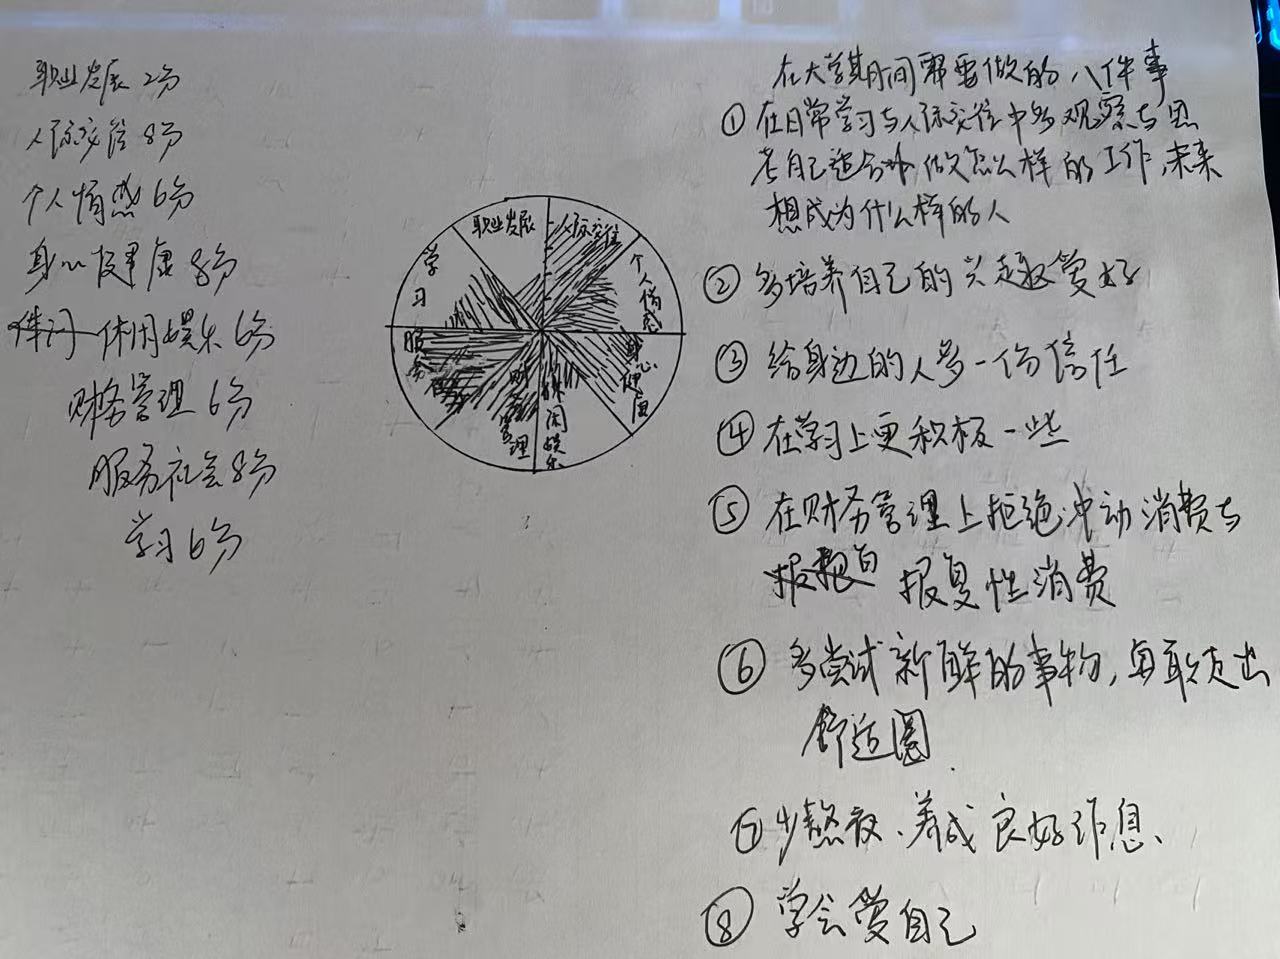 职业发展 2分
人际交往 8分
个人情感 6分
身心健康 8分
休闲娱乐 6分
财务管理 6分
服务社会 8分
学习 6分
职业发展
人际交往
个人情感
身心健康
休闲娱乐
财务管理
服务
学习
在大学期间需要做的八件事
① 在日常学习与人际交往中多观察与思
考自己适合做怎么样的工作,未来
想成为什么样的人
② 多培养自己的兴趣爱好
③ 给身边的人多一份信任
④ 在学习上更积极一些
⑤ 在财务管理上拒绝冲动消费与
报复性消费
⑥ 多尝试新鲜的事物,勇敢走出
舒适圈.
⑦ 少熬夜、养成良好作息、
⑧ 学会爱自己